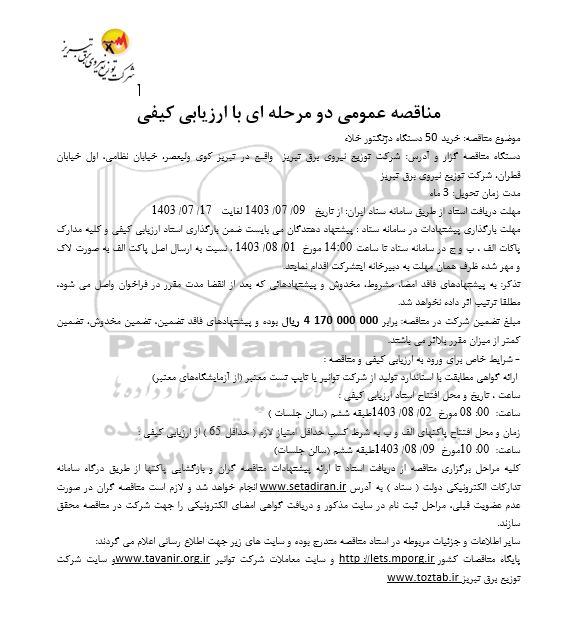 شرکت توزیع نیروی برق تبریز
مناقصه عمومی دو مرحله ای با ارزیابی کیفی
موضوع مناقصه: خرید 50 دستگاه دژنگتور خلاء
دستگاه مناقصه گزار و آدرس: شرکت توزیع نیروی برق تبریز واقع در تبریز کوی ولیعصر، خیابان نظامی، اول خیابان
قطران، شرکت توزیع نیروی برق تبریز
مدت زمان تحویل: 3 ماه
مهلت دریافت اسناد از طریق سامانه ستاد ایران: از تاریخ 09/ 07/ 1403 لغایت 17/ 07/ 1403
مهلت بارگذاری پیشنهادات در سامانه ستاد : پیشنهاد دهندگان می بایست ضمن بارگذاری اسناد ارزیابی کیفی و کلیه مدارک
پاکات الف ، ب و ج در سامانه ستاد تا ساعت 14:00 مورخ 01/ 08/ 1403 ، نسبت به ارسال اصل پاکت الف به صورت لاک
و مهر شده ظرف همان مهلت به دبیرخانه اینشرکت اقدام نمایند.
تذکر: به پیشنهادهای فاقد امضا، مشروط، مخدوش و پیشنهادهائی که بعد از انقضا مدت مقرر در فراخوان واصل می شود،
مطلقا ترتیب اثر داده نخواهد شد.
مبلغ تضمین شرکت در مناقصه: برابر 000 000 170 4 ریال بوده و پیشنهادهای فاقد تضمین، تضمین مخدوش، تضمین
کمتر از میزان مقرر بلااثر می باشند.
- شرایط خاص برای ورود به ارزیابی کیفی و مناقصه :
ارائه گواهی مطابقت با استاندارد تولید از شرکت توانیر یا تایپ تست معتبر (از آزمایشگاه‌های معتبر)
ساعت ، تاریخ و محل افتتاح اسناد ارزیابی کیفی :
ساعت: 00: 08 مورخ 02/ 08/ 1403طبقه ششم (سالن جلسات )
زمان و محل افتتاح پاکتهای الف و ب به شرط کسب حداقل امتیاز لازم ( حداقل 65 ) از ارزیابی کیفی :
ساعت: 00: 10مورخ 09/ 08/ 1403طبقه ششم (سالن جلسات)
کلیه مراحل برگزاری مناقصه از دریافت اسناد تا ارائه پیشنهادات مناقصه گران و بازگشایی پاکتها از طریق درگاه سامانه
تدارکات الکترونیکی دولت ( ستاد ) به آدرس www.setadiran.ir انجام خواهد شد و لازم است مناقصه گران در صورت
عدم عضویت قبلی، مراحل ثبت نام در سایت مذکور و دریافت گواهی امضای الکترونیکی را جهت شرکت در مناقصه محقق
سازند.
سایر اطلاعات و جزئیات مربوطه در اسناد مناقصه مندرج بوده و سایت های زیر جهت اطلاع رسانی اعلام می گردند:
پایگاه مناقصات کشور http://iets.mporg.ir و سایت معاملات شرکت توانیر www.tavanir.org.ir و سایت شرکت
توزیع برق تبریز www.toztab.ir
ParsNamadData